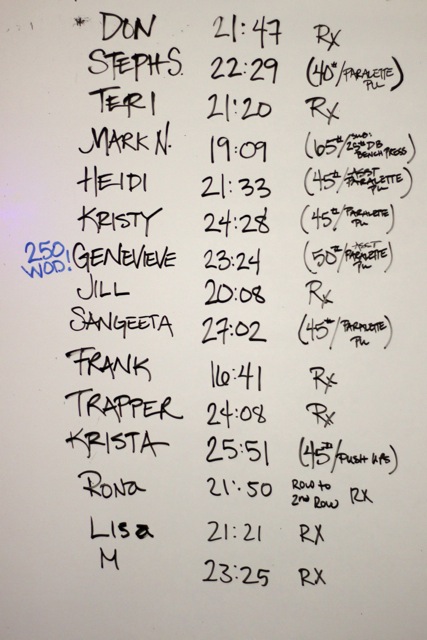 * DON 21:47 Rx
STEPH S. 22:29 (40#/PARALETTE PU)
TERI 21:20 Rx
MARK N. 19:09 (65#/SUB. 20# DB BENCH PRESS)
HEIDI 21:33 (45#/ASST PARALETTE PU)
KRISTY 24:28 (45#/PARALETTE PU)
250 WOD! GENEVIEVE 23:24 (50#/ASST PARALETTE PU)
JILL 20:08 Rx
SANGEETA 27:02 (45#/PARALETTE PU)
FRANK 16:41 Rx
TRAPPER 24:08 Rx
KRISTA 25:51 (45#/PUSH UPS)
RONA 21:50 ROW TO 2ND ROW RX
LISA 21:21 RX
M 23:25 RX